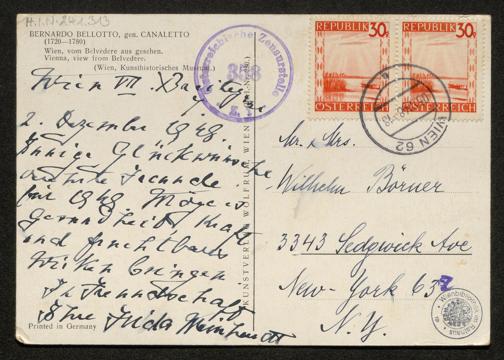 H.I.N-241.313
BERNARDO BELLOTTO, gen. CANALETTO
(1720—1780)
Wien, vom Belvedere aus gesehen.
Vienna, view from Belvedere.
(Wien, Kunsthistorisches Museum.)
Wien VII.
2. Dezember 1948.
Innige Glückwünsche
Freunde
für 1949 Möge es
Gesundheit, Kraft
und fruchtbares
Wirken bringen
In Freundschaft
Ihre Frida
Printed in Germany
KUNSTVERLAG WOLFRUM, WIEN
Österreichische Zensurstelle
358
REPUBLIK 30g
ÖSTERREICH
REPUBLIK 30g
ÖSTERREICH
WIEN 62
Mr. & Mrs.
Wilhelm Börner
3343 Sedgwick Ave
New-York 63
N.Y.
Wienbibliothek im Rathaus